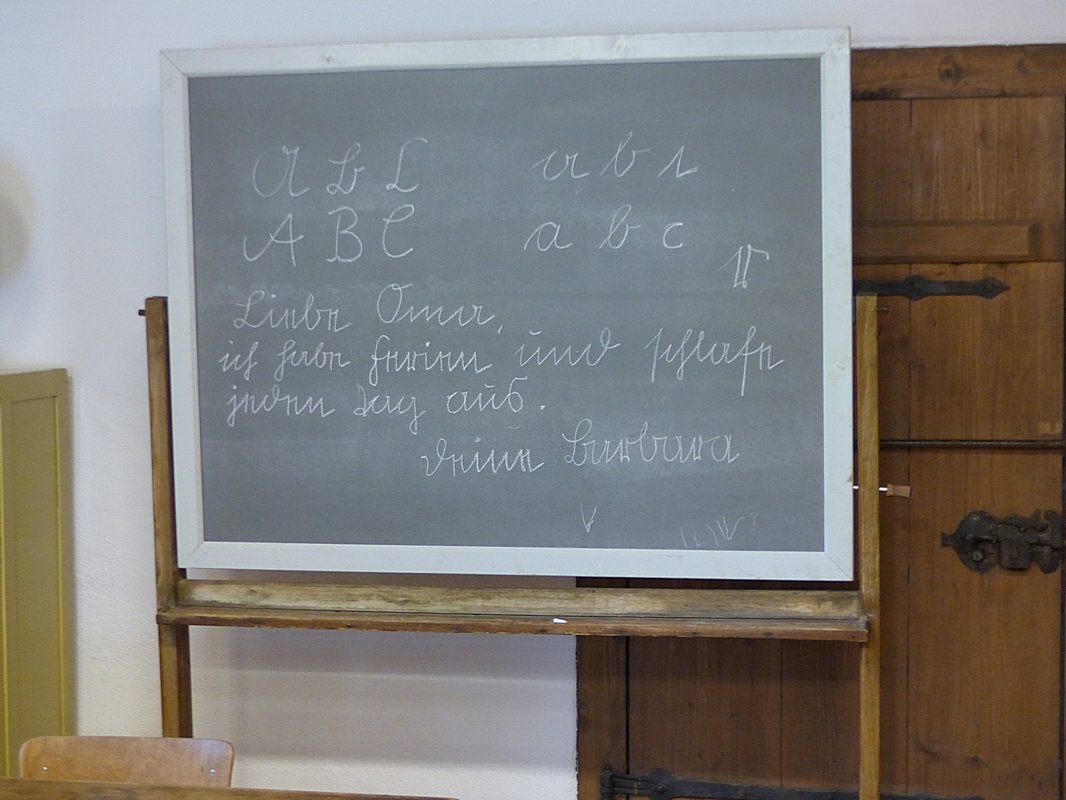 A B C a b c
A B C a b c
Liebe Oma,
ich habe Ferien und schlafe
jeden Tag aus.
Deine Barbara